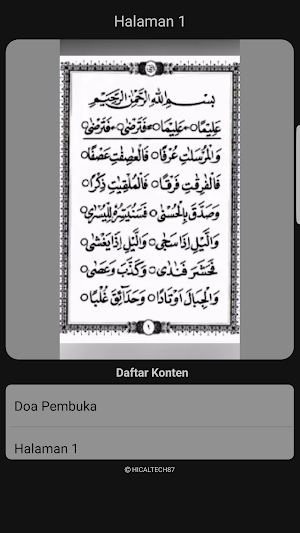 Halaman 1
بِسْمِ اللّٰهِ الرَّحْمٰنِ الرَّحِيْمِ
عَلِيْمًا ○ + عَلِيْمَا ○ فَتَرْضٰى ○ + فَتَرْضٰى ○
وَالْمُرْسَلٰتِ عُرْفًا ○ فَالْعٰصِفٰتِ عَصْفًا ○
فَالْفٰرِقٰتِ فَرْقًا ○ فَالْمُلْقِيٰتِ ذِكْرًا ○
وَصَدَّقَ بِالْحُسْنٰى ○ فَسَنُيَسِّرُهٗ لِلْيُسْرٰى ○
وَالَّيْلِ اِذَا سَجٰى ○ وَالَّيْلِ اِذَا يَغْشٰى ○
فَحَشَرَ فَنَادٰى ○ وَكَذَّبَ وَعَصٰى ○
وَالْجِبَالَ اَوْتَادًا ○ وَحَدَآئِقَ غُلْبًا ○
١
Daftar Konten
Doa Pembuka
Halaman 1
© HICALTECH87